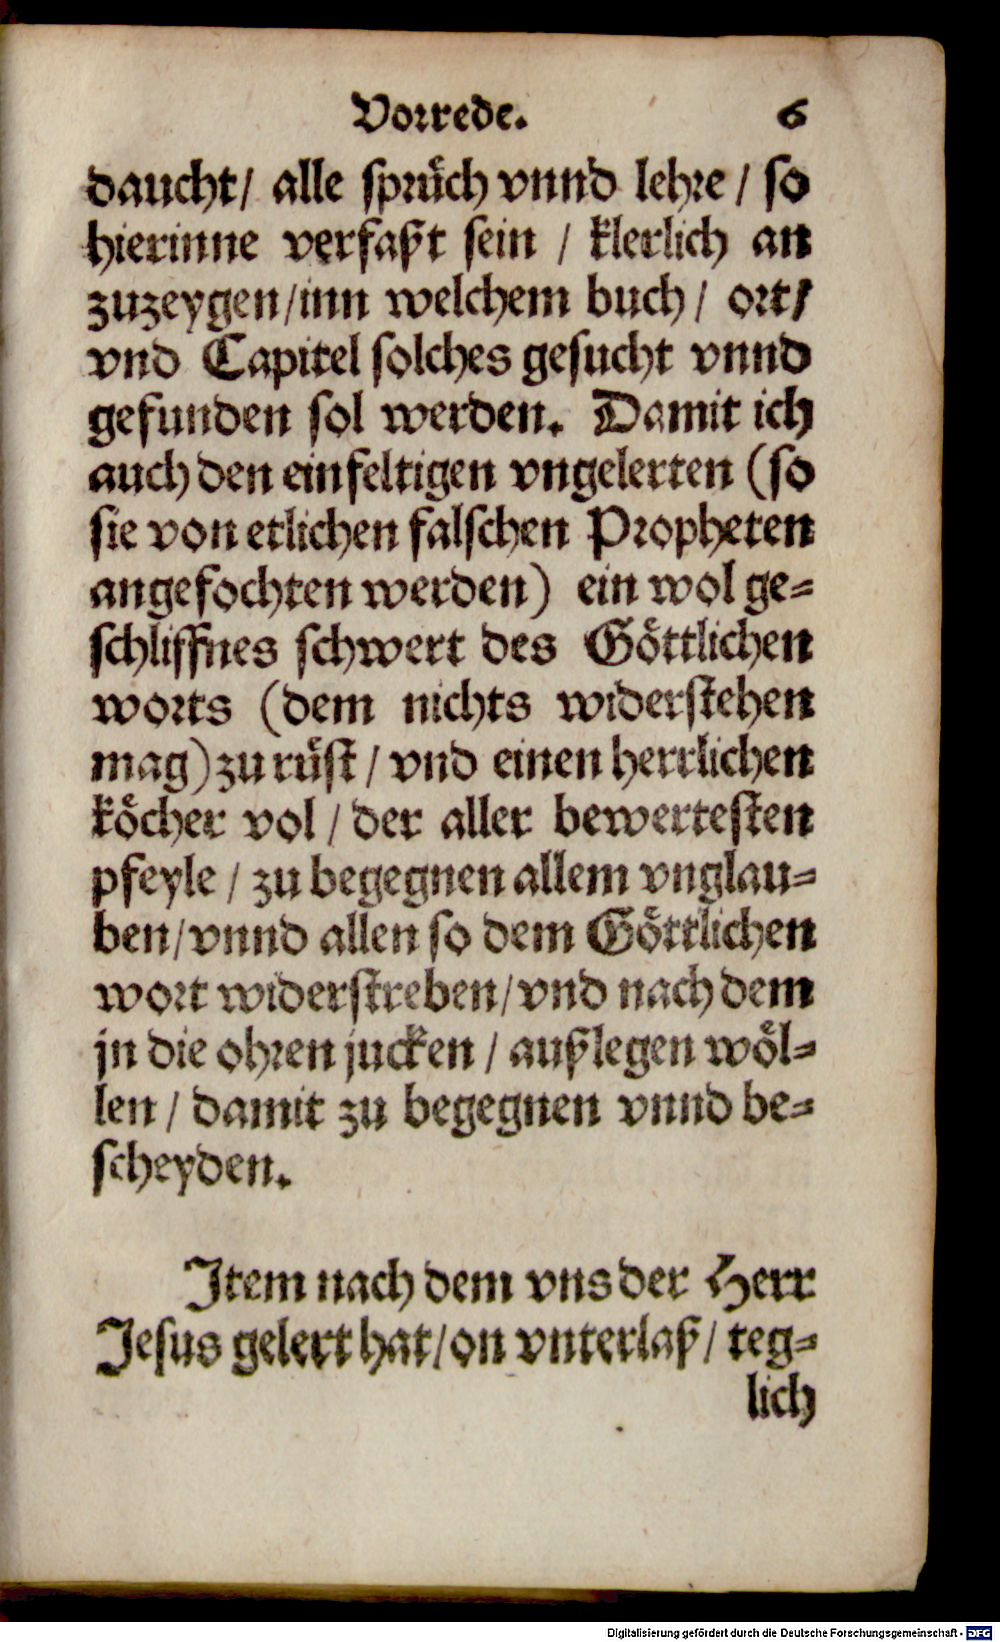 Vorrede. 6
daucht/ alle sprüch vnnd lehre / so
hierinne verfaßt sein / klerlich an
zuzeygen/inn welchem buch / ort/
vnd Capitel solches gesucht vnnd
gefunden sol werden. Damit ich
auch den einfeltigen vngelerten (so
sie von etlichen falschen Propheten
angefochten werden) ein wol ge=
schliffnes schwert des Göttlichen
worts (dem nichts widerstehen
mag) zu rüst / vnd einen herrlichen
köcher vol / der aller bewertesten
pfeyle / zu begegnen allem vnglau=
ben/vnnd allen so dem Göttlichen
wort widerstreben/vnd nach dem
jn die ohren jucken / außlegen wöl=
len / damit zu begegnen vnnd be=
scheyden.
Item nach dem vns der Herr
Jesus gelert hat/on vnterlaß/ teg=
lich
Digitalisierung gefördert durch die Deutsche Forschungsgemeinschaft - DFG